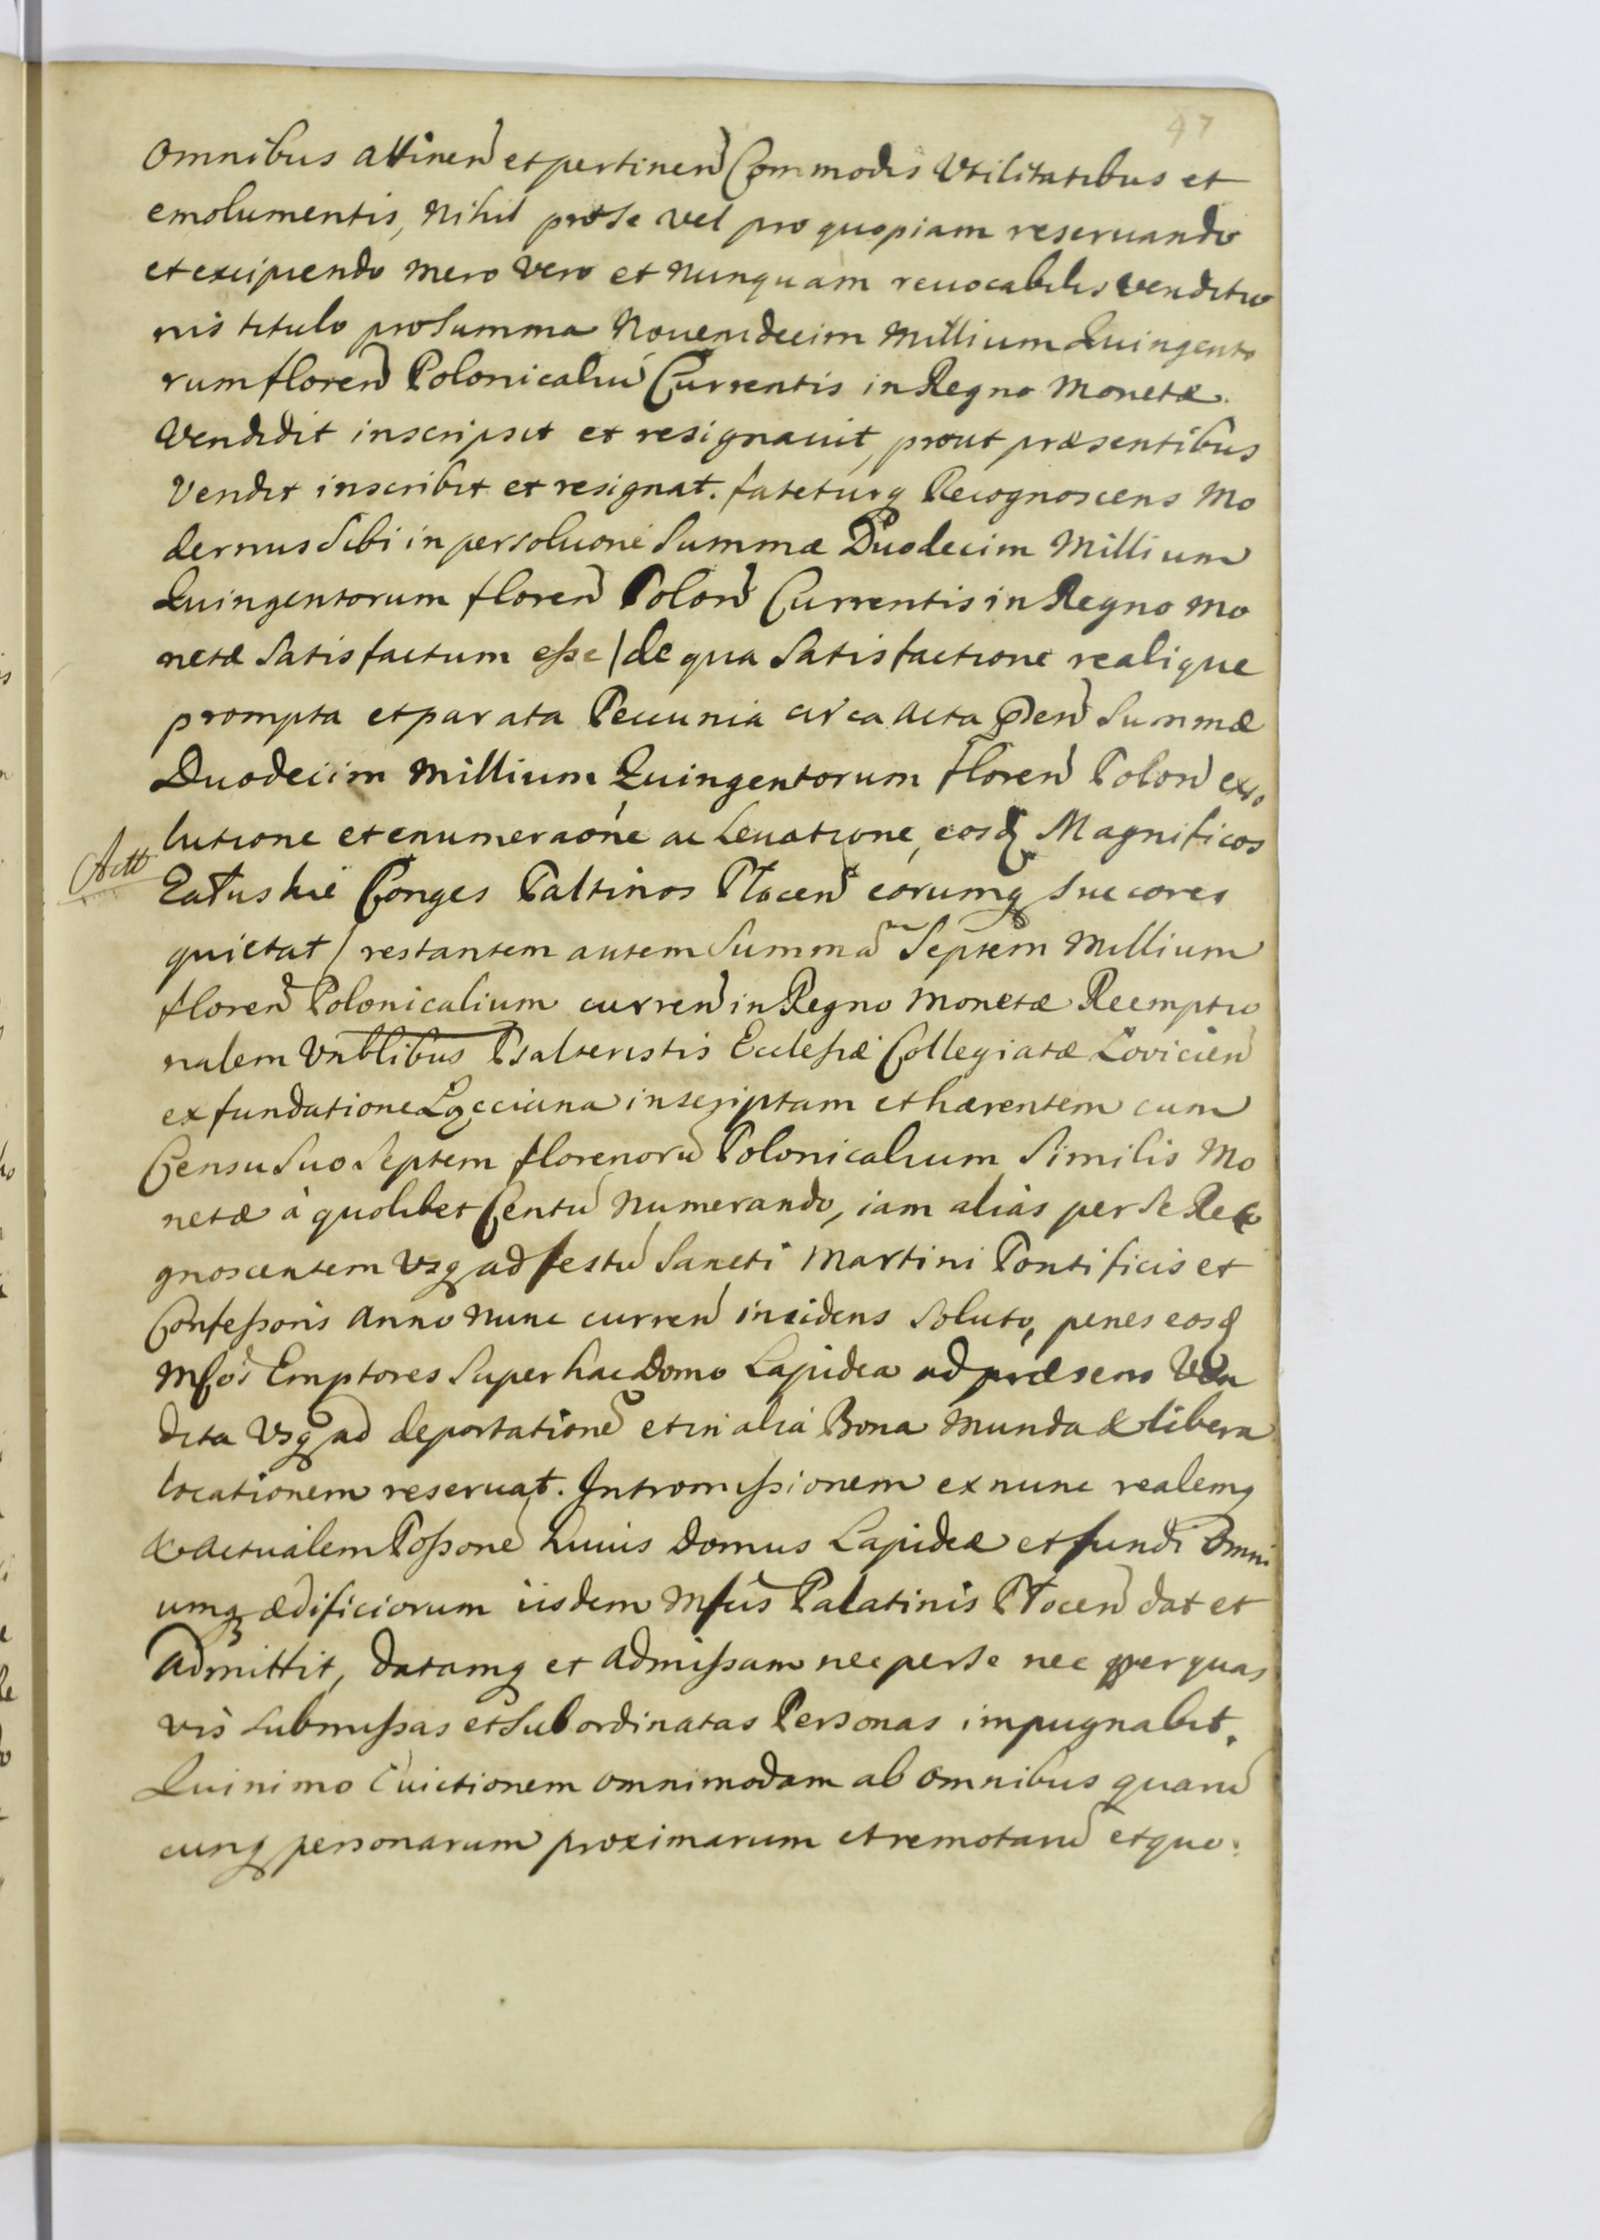 47
omnibus attinen̄ et pertinen̄ Commodis Vtilitatibus et
emolumentis, Nihil pro se vel pro quopiam reseruando
et excipiendo mero vero et nunquam reuocabilis venditio
nis titulo pro Summa Nouendecim Millium Quingento
rum floren̄ Polonicaliū Currentis in Regno Monetæ.
Vendidit inscripsit et resignauit, prout præsentibus
Vendit inscribit et resignat. fateturq Recognoscens Mo
dernus Sibi in persoluōne Summæ Duodecim Millium
Quingentorum floren̄ Polon̄ Currentis in Regno Mo
netæ Satisfactum esse / de qua Satisfactione realique
prompta et parata Pecunia circa acta p̄den̄ Summæ
Duodecim Millium Quingentorum floren̄ Polon̄ exso
lutione et enumeraōne ac Leuatione, eosq Magnificos
Actt
Załuskie Conges Paltinos Płocen̄ eorumq succores
quietat / restantem autem Summā Septem Millium
floren̄ Polonicalium curren̄ in Regno Monetæ Reemptio
nalem Vnblibus Psalteristis Ecclesiæ Collegiatæ Lovicien̄
ex fundatione Łącciana inscriptam et hærentem cum
Censu Suo Septem florenorū Polonicalium Similis Mo
netæ à quolibet Centū Numerando, iam alias per Se Reco
gnoscentem Vsq ad festū Sancti Martini Pontificis et
Confessoris Anno Nunc curren̄ incidens Soluto, penes eosq
Mfcōs Emptores Super hac Domo Lapidea ad præsens Ven
dita Vsq ad deportationē et in alia Bona Munda & libera
locationem reseruat. Intromissionem ex nunc realemq
& actualem Possonē huius Domus Lapideæ et fundi Omni
umq ædificiorum iisdem Mfcis Palatinis Płocen̄ dat et
admittit, datamq et admissam nec per se nec per quas
vis submissas et Subordinatas Personas impugnabit.
Quinimo Euictionem omnimodam ab omnibus quarū
cunq personarum proximarum et remotarū et quo: